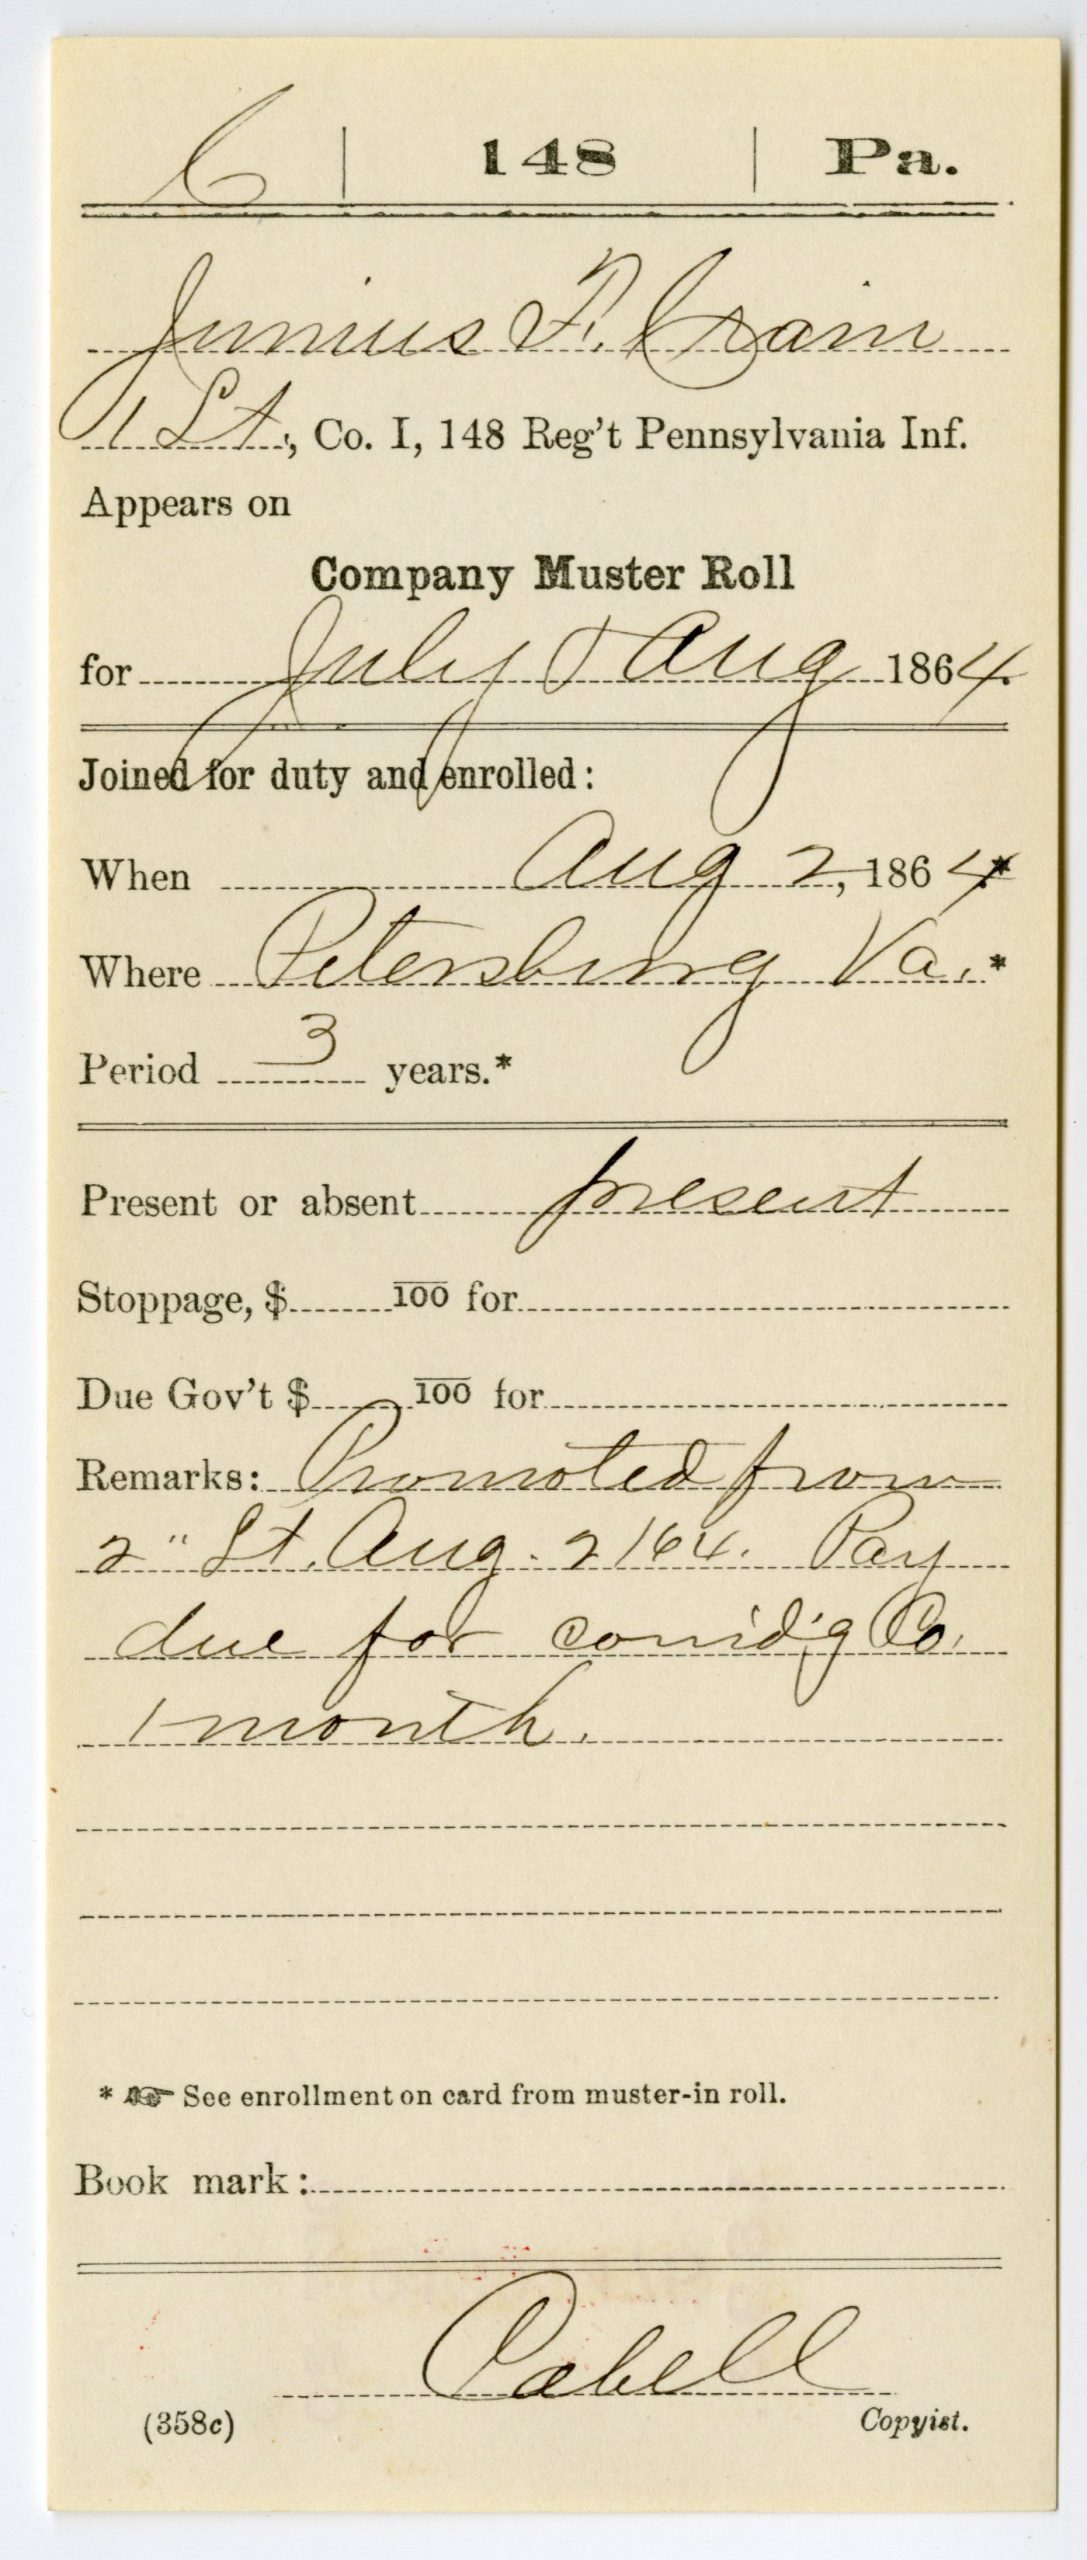 C | 148 | Pa.
Junius F. Crain
1 Lt., Co. I, 148 Reg't Pennsylvania Inf.
Appears on
Company Muster Roll
for July & Aug 1864.
Joined for duty and enrolled:
When Aug 2, 1864.*
Where Petersburg Va.*
Period 3 years.*
Present or absent present
Stoppage, $ 100 for
Due Gov't $ 100 for
Remarks: Promoted from
2" Lt. Aug. 2/64. Pay
due for com'd'g Co.
1 month.
* ☞ See enrollment on card from muster-in roll.
Book mark:
Cabell
(358c) Copyist.